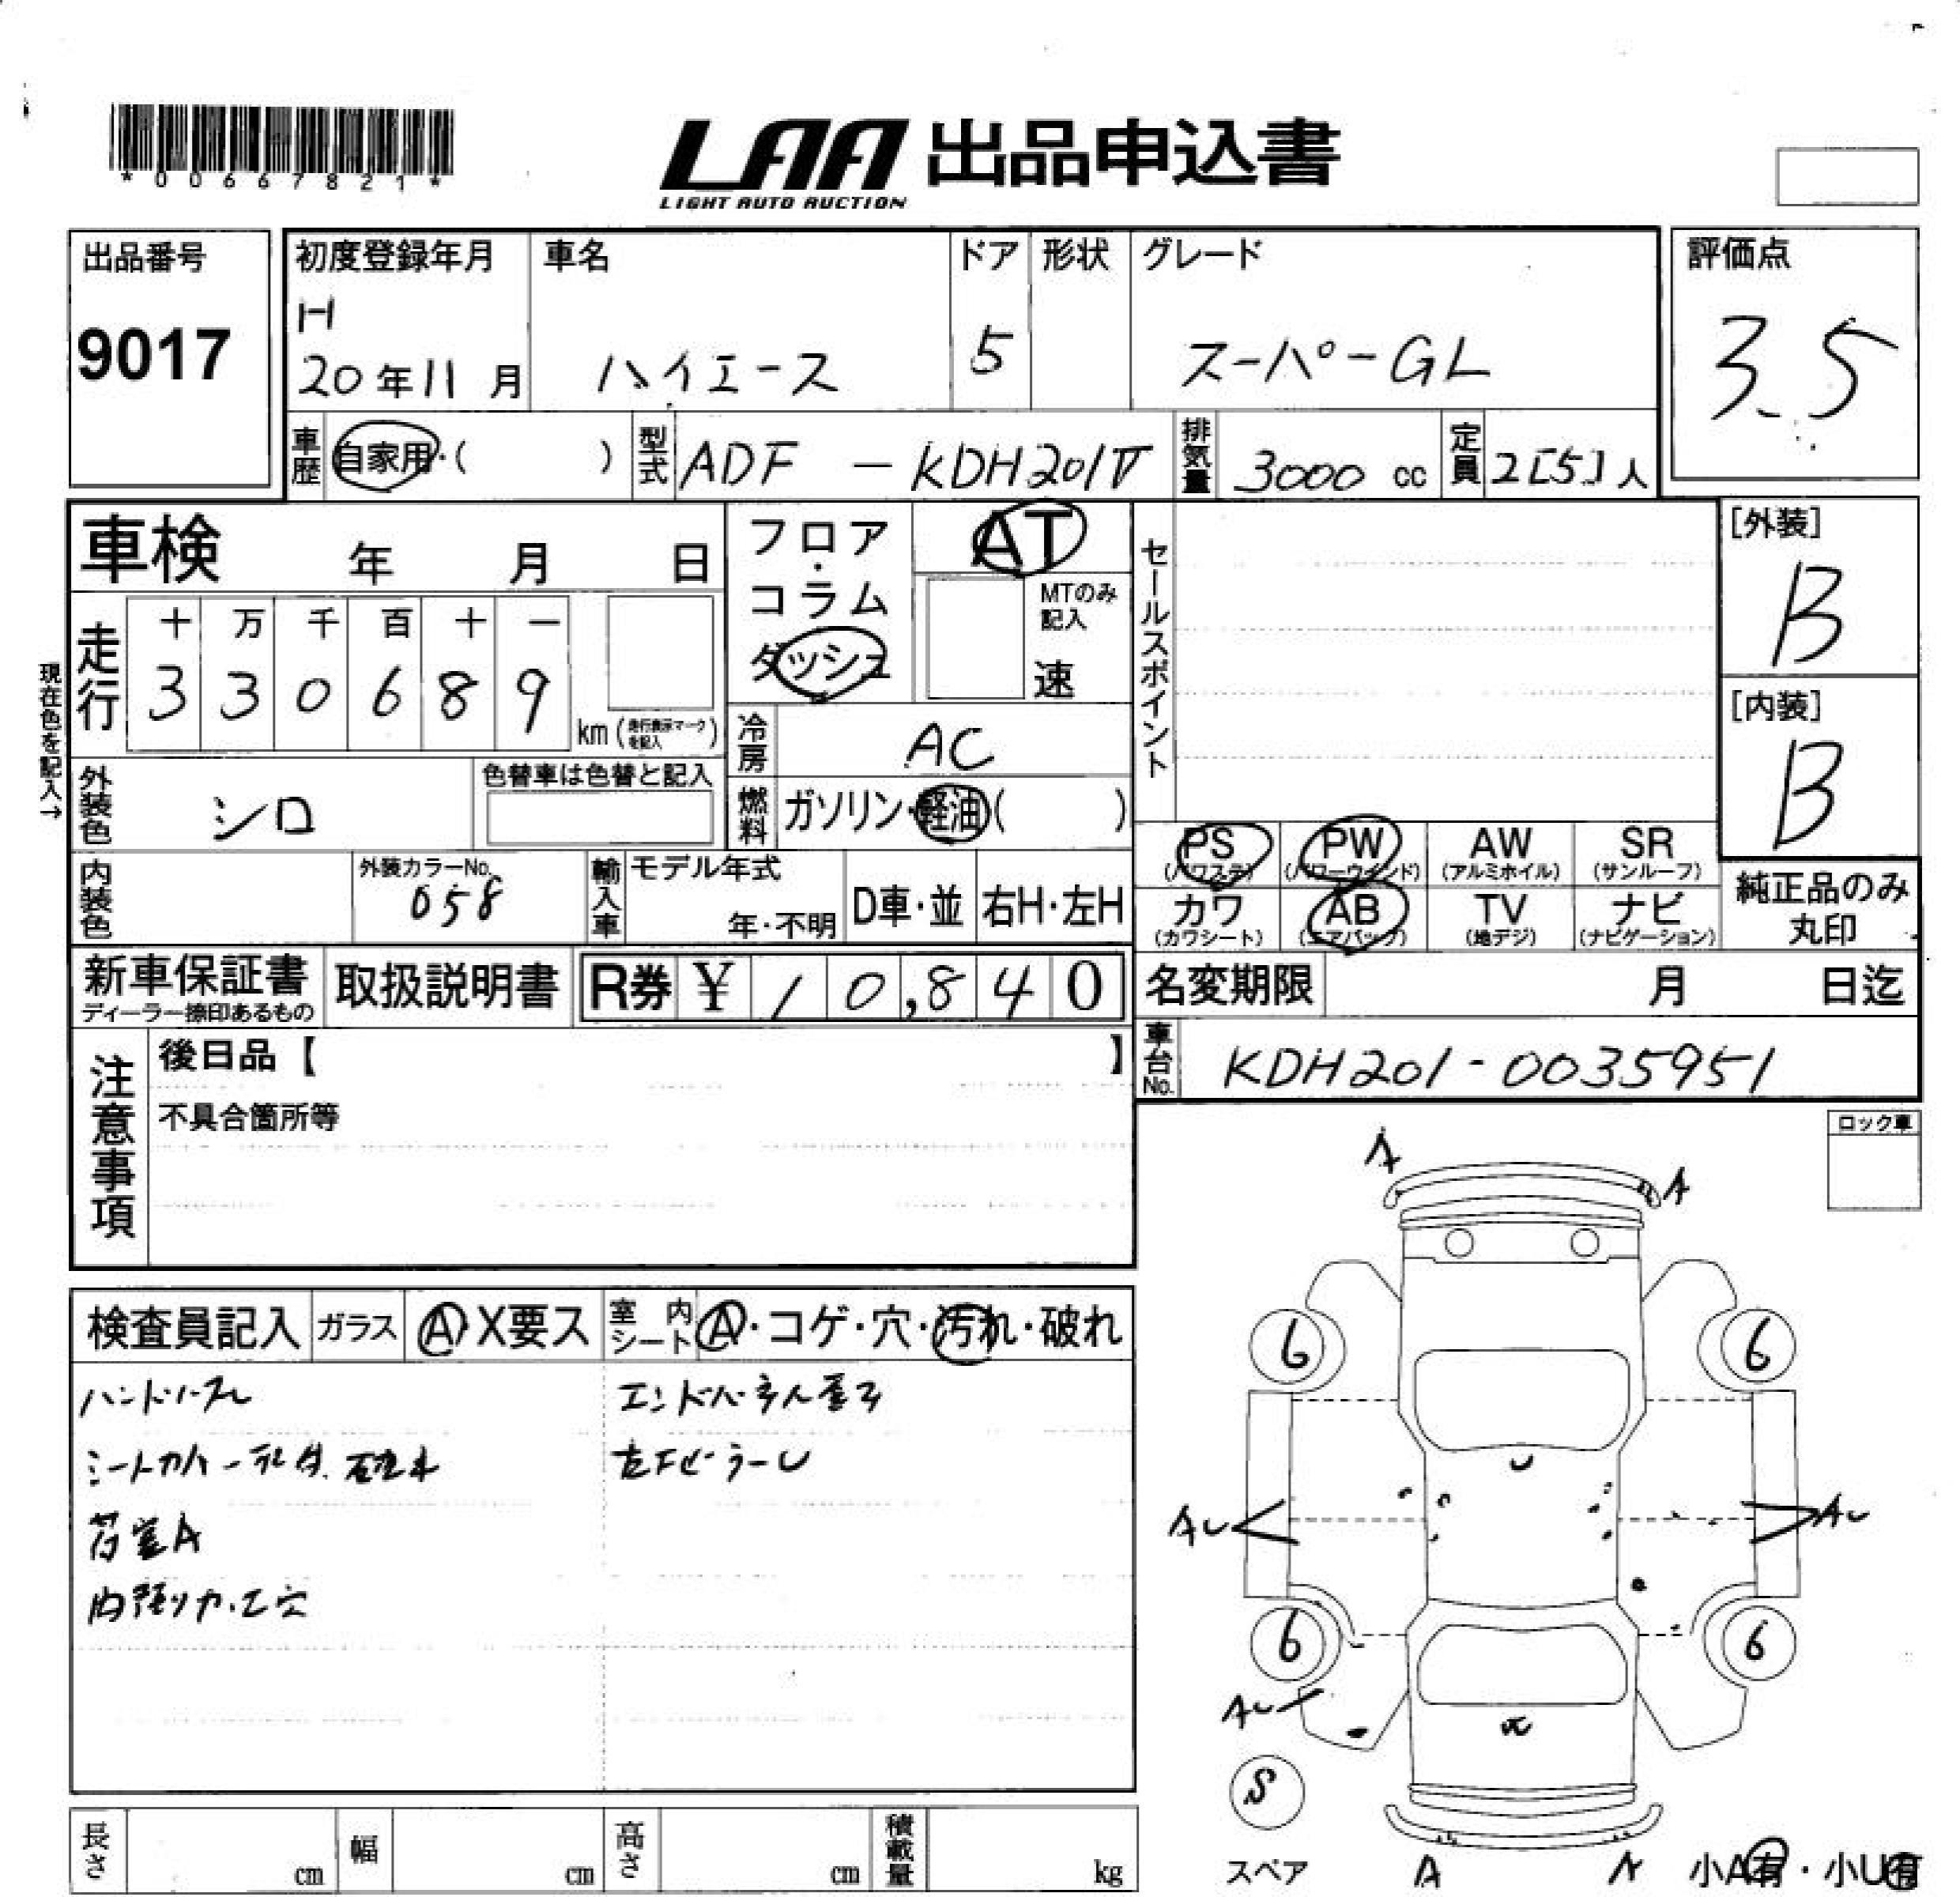 *00667821*
LAA 出品申込書
LIGHT AUTO AUCTION
出品番号
9017
初度登録年月
H
20年11月
車名
ハイエース
ドア
5
形状
グレード
スーパーGL
評価点
3.5
車歴
自家用・( )
型式
ADF - KDH201V
排気量
3000 cc
定員
2[5]人
車検 年 月 日
フロア・コラム
ダッシュ
AT
MTのみ記入
速
セールスポイント
[外装]
B
[内装]
B
現在色を記入→
走行
十 万 千 百 十 一
3 3 0 6 8 9
km (走行表示マークを記入)
冷房
AC
外装色
シロ
色替車は色替と記入
燃料
ガソリン・軽油( )
PS (パワステ)
PW (パワーウインド)
AW (アルミホイル)
SR (サンルーフ)
内装色
外装カラーNo.
058
輸入車
モデル年式
年・不明
D車・並
右H・左H
カワ (カワシート)
AB (エアバック)
TV (地デジ)
ナビ (ナビゲーション)
純正品のみ
丸印
新車保証書
ディーラー捺印あるもの
取扱説明書
R券 ¥ 10,840
名変期限 月 日迄
車台No.
KDH201-0035951
注意事項
後日品【 】
不具合箇所等
ロック車
検査員記入
ガラス
A X要ス
室内シート
A・コゲ・穴・汚れ・破れ
ハンドルスレ
エンドパネル歪ミ
シートカバー
左FピラーU
荷室A
内張り加工穴
A
A
6
6
U
AU
AU
6
6
AU
S
スペア
A
A
小A有・小U有
長さ cm
幅 cm
高さ cm
積載量 kg